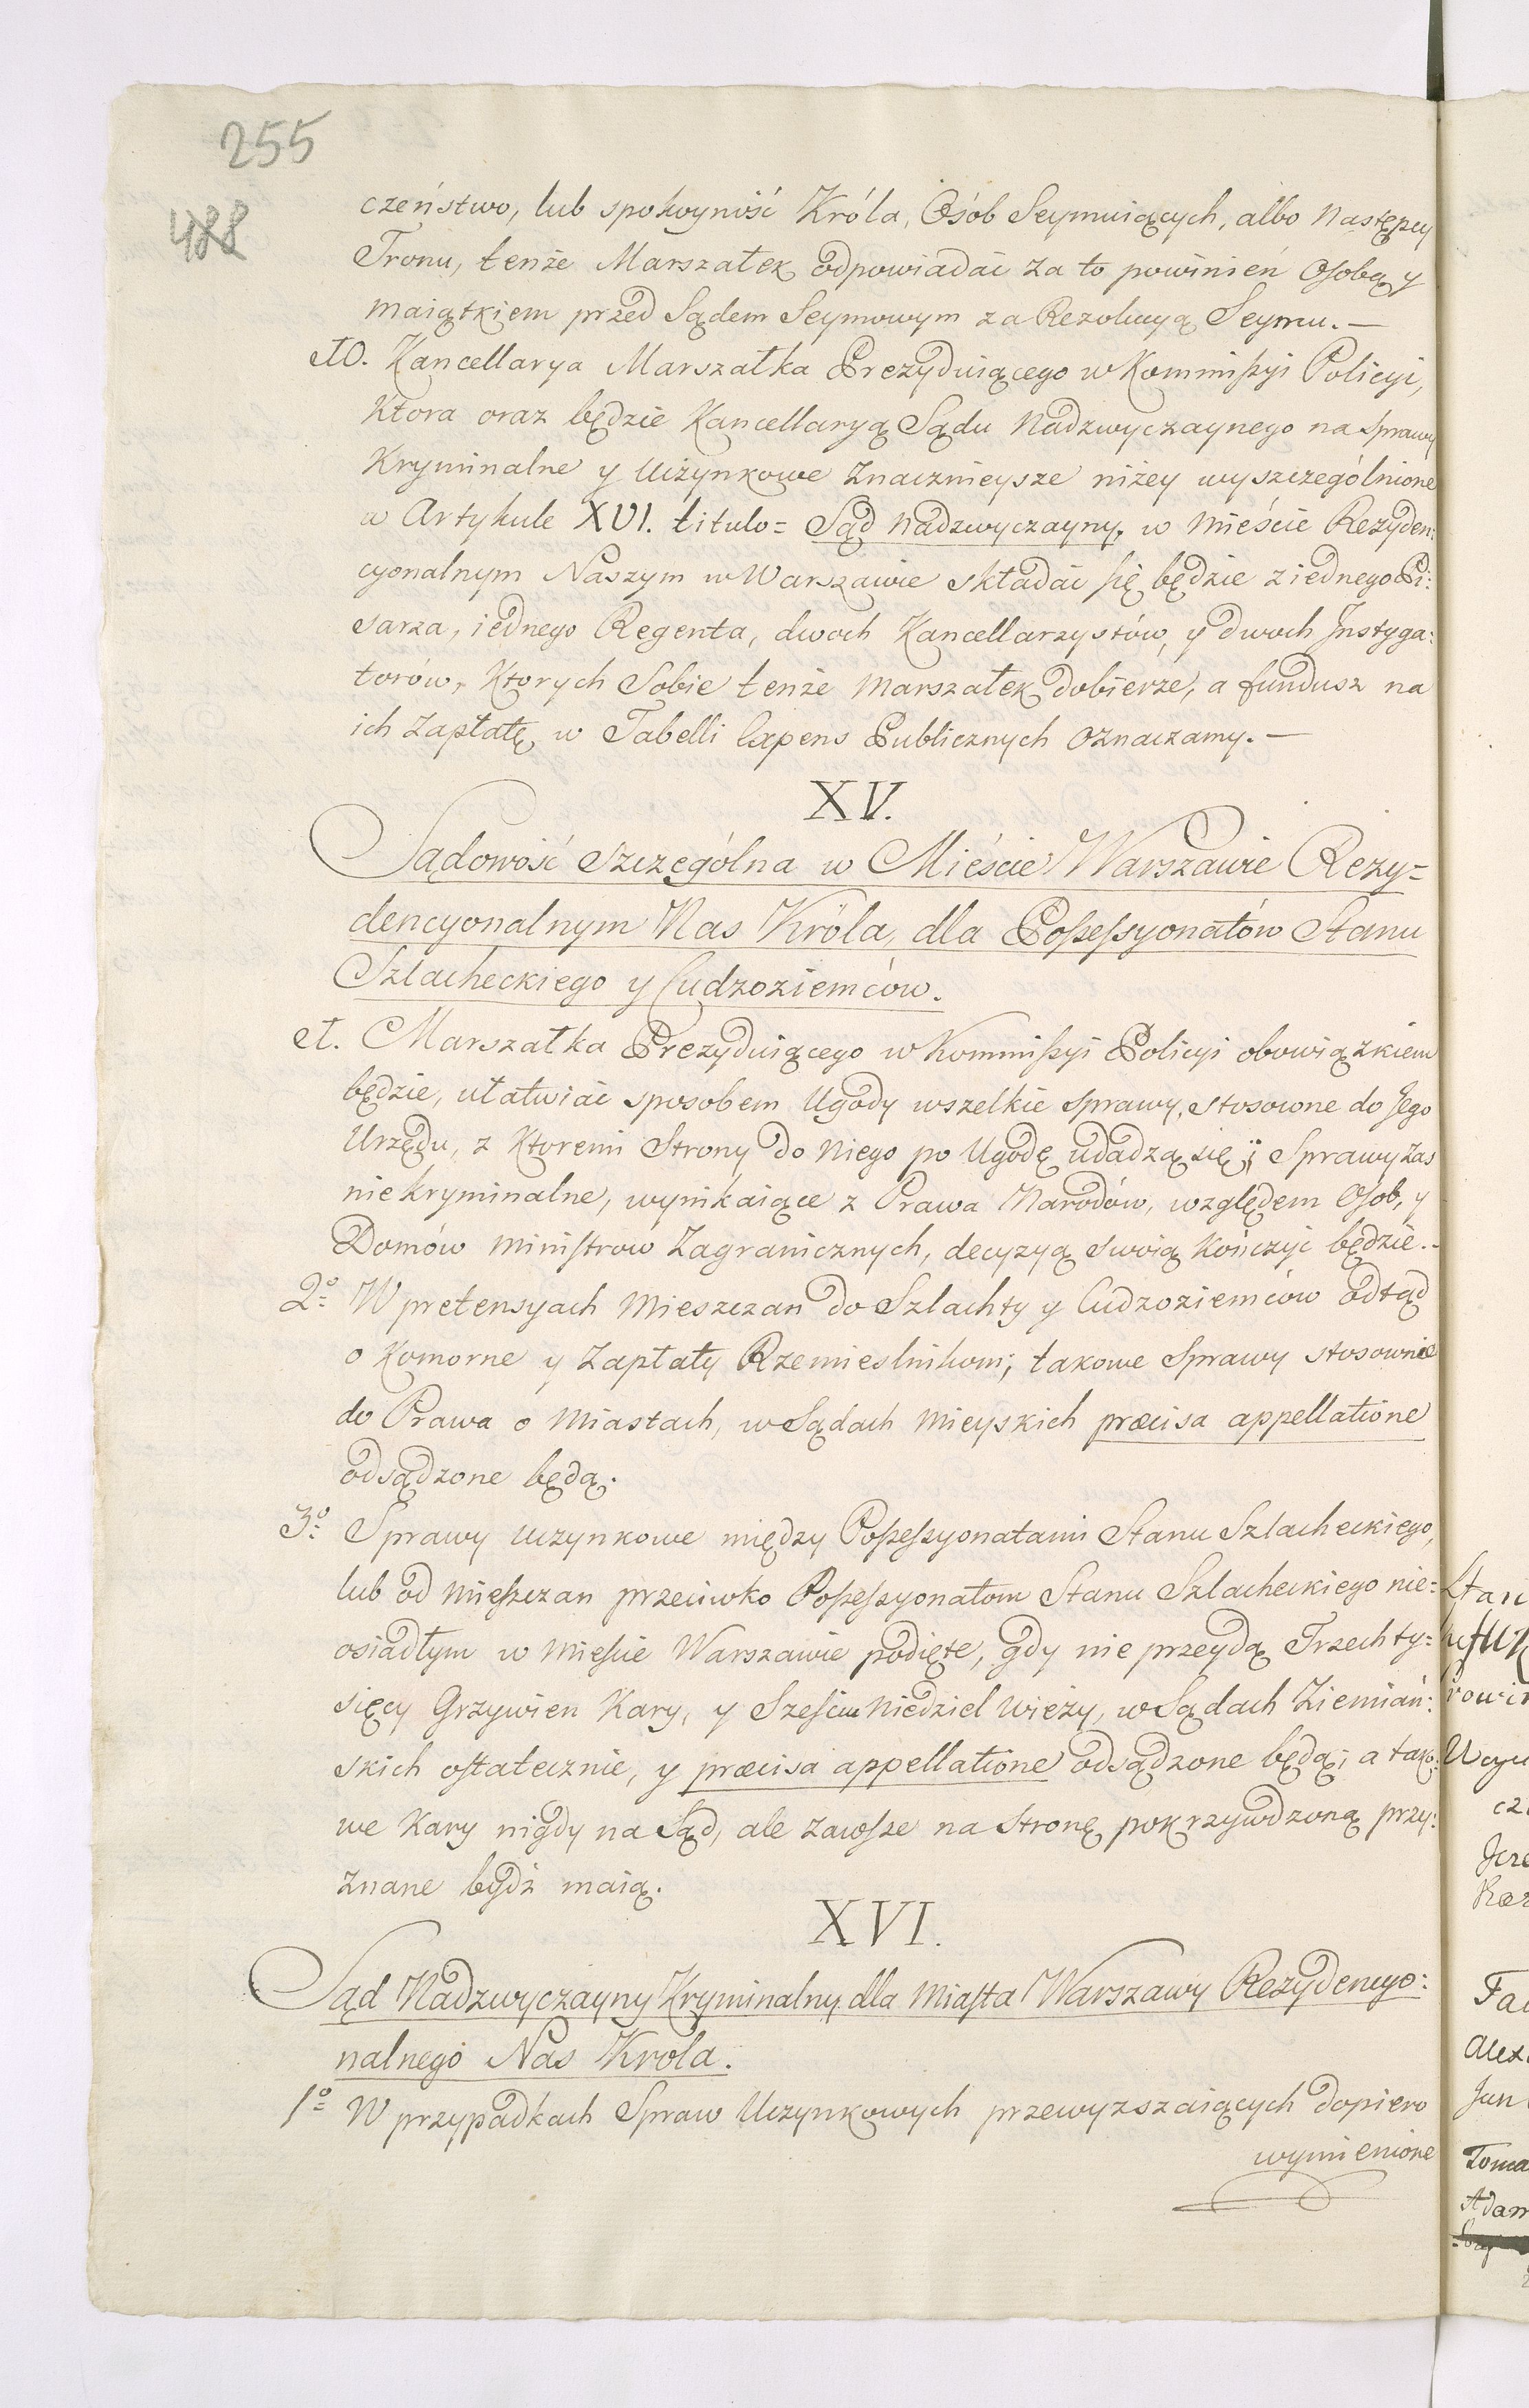 255
488
czeństwo, lub spokoyność Króla, Osób Seymuiących, albo Następcy
Tronu, tenże Marszałek odpowiadać za to powinień Osobą y
maiątkiem przed Sądem Seymowym za Rezolucyą Seymu. —
10. Kancellarya Marszałka Prezyduiącego w Kommißyi Policyi,
Ktora oraz będzie Kancellaryą Sądu Nadzwyczaynego na sprawy
Kryminalne y Uczynkowe Znacznieysze niżey wyszczególnione
w Artykule XVI. titulo = Sąd Nadzwyczayny, w Mieście Rezyden:
cyonalnym Naszym w Warszawie składać się będzie z iednego Pi:
sarza, iednego Regenta, dwoch Kancellarzystów, y dwoch Instyga:
torów, Ktorych Sobie tenże Marszałek dobierze, a fundusz na
ich Zapłatę w Tabelli Expens Publicznych Oznaczamy. —
XV.
Sądowość szczególna w Mieście Warszawie Rezy=
dencyonalnym Nas Króla, dla Poßeßyonatów Stanu
Szlacheckiego y Cudzoziemców.
1. Marszałka Prezyduiącego w Kommißyi Policyi obowiązkiem
będzie, ułatwiać sposobem Ugody wszelkie sprawy, stosowne do Jego
Urzędu, z Ktoremi Strony do Niego po Ugodę udadzą się; Sprawy zas
nie kryminalne, wynikaiące z Prawa Narodów, względem Osob, y
Domów Ministrow Zagranicznych, decyzyą swoią Kończyć będzie. -
2º W pretensyach Mieszczan do Szlachty y Cudzoziemców odtąd
o Komorne y Zapłaty Rzemieslnikom; takowe Sprawy stosownie
do Prawa o Miastach, w Sądach Mieyskich præcisa appellatione
odsądzone będą.
3º Sprawy uczynkowe między Poßeßyonatami Stanu Szlacheckiego,
lub od Mieszczan przeciwko Poßeßyonatom Stanu Szlacheckiego nie=
osiadłym w Mieście Warszawie podięte, gdy nie przeydą Trzech ty=
sięcy Grzywien Kary, y Sześciu Niedziel wieży, w Sądach Ziemiań:
skich ostatecznie, y præcisa appellatione odsądzone będą; a tako:
we Kary nigdy na Sąd, ale zawsze na Stronę pokrzywdzoną przy:
znane bydż maią.
XVI.
Sąd Nadzwyczayny Kryminalny dla Miasta Warszawy Rezydencyo:
nalnego Nas Krola.
1º W przypadkach Spraw Uczynkowych przewyzszaiących dopiero
wymienione